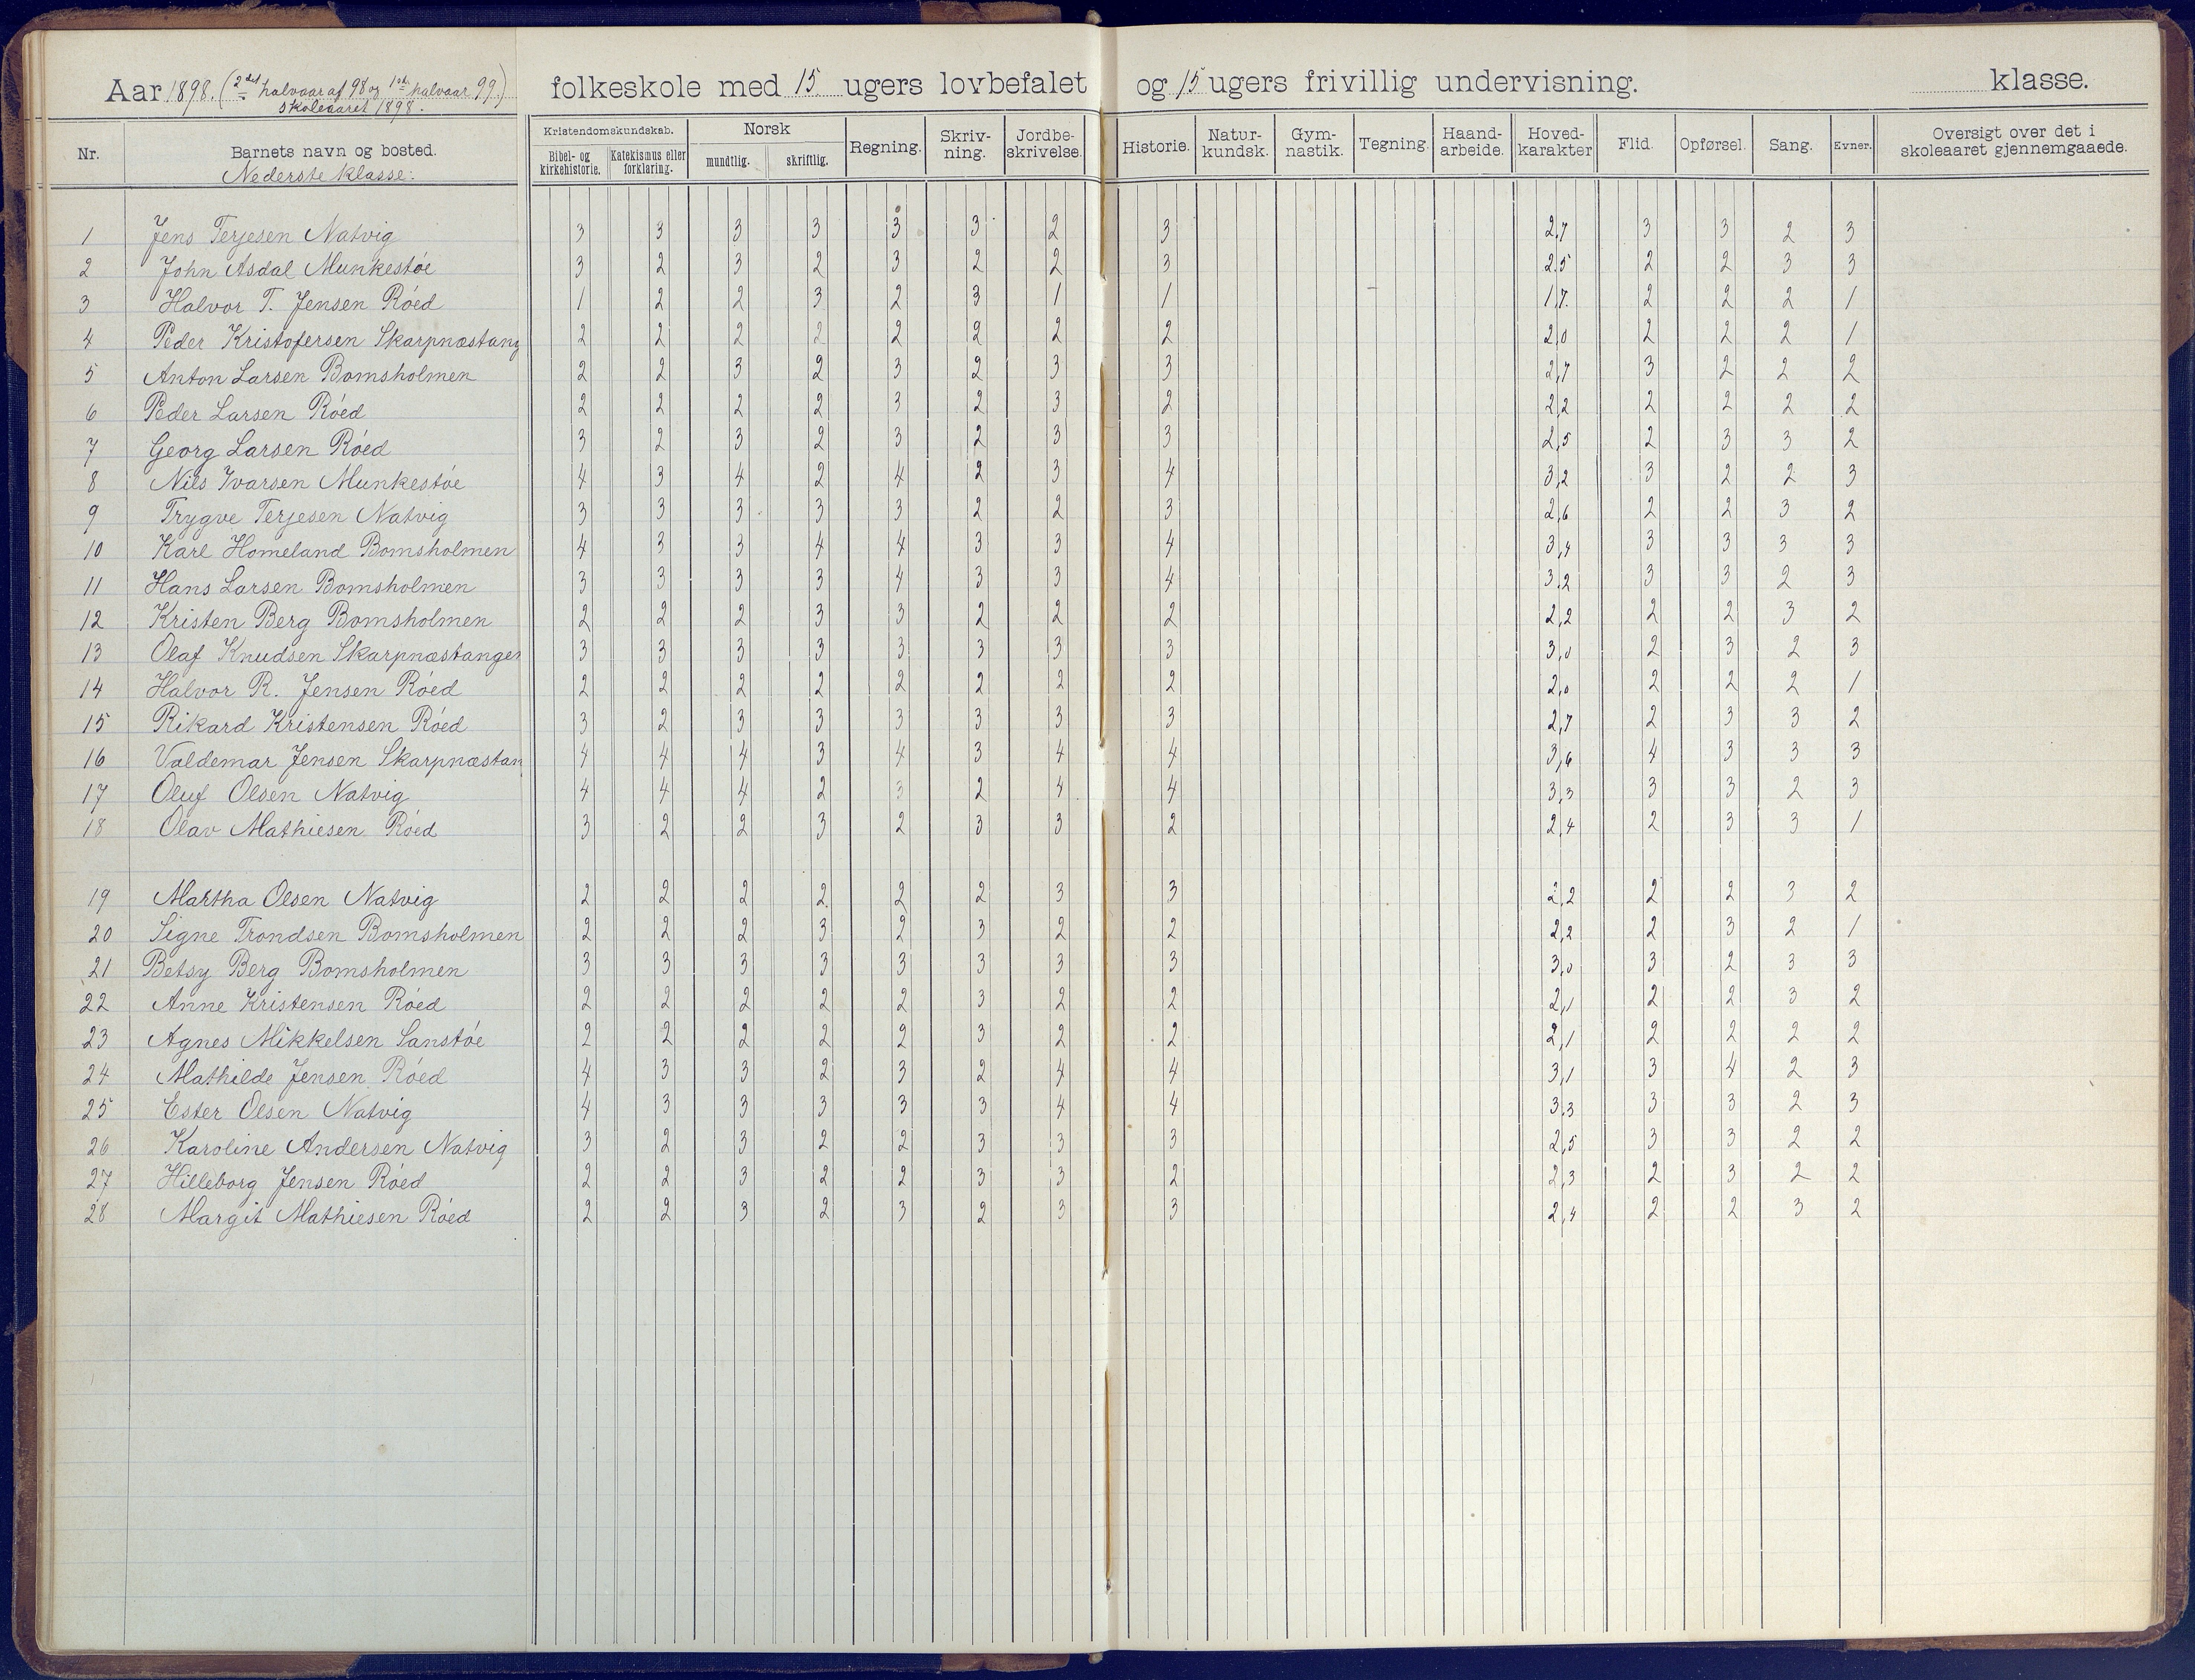 Aar 1898. (2det halvaar af 98 og 1ste halvaar 99.) folkeskole med 15 ugers lovbefalet og 15 ugers frivillig undervisning. klasse.
skoleaaret 1898.
Nr. Barnets navn og bosted. Kristendomskundskab. Bibel- og kirkehistorie. Katekismus eller forklaring. Norsk mundtlig. skriftlig. Regning. Skriv-ning. Jordbe-skrivelse. Historie. Natur-kundsk. Gym-nastik. Tegning. Haand-arbeide. Hoved-karakter Flid. Opførsel. Sang. Evner. Oversigt over det i skoleaaret gjennemgaaede.
Nederste klasse:
1 Jens Terjesen Natvig 3 3 3 3 3 3 2 3 2,7 3 3 2 3
2 John Asdal Munkestøe 3 2 3 2 3 2 2 3 2,5 2 2 3 3
3 Halvor T. Jensen Røed 1 2 2 3 2 3 1 1 1,7. 2 2 2 1
4 Peder Kristofersen Skarpnæstang 2 2 2 2 2 2 2 2 2,0 2 2 2 1
5 Anton Larsen Bomsholmen 2 2 3 2 3 2 3 3 2,7 3 2 2 2
6 Peder Larsen Røed 2 2 2 2 3 2 3 2 2,2 2 2 2 2
7 Georg Larsen Røed 3 2 3 2 3 2 3 3 2,5 2 3 3 2
8 Nils Ivarsen Munkestøe 4 3 4 2 4 2 3 4 3,2 3 2 2 3
9 Trygve Terjesen Natvig 3 3 3 3 3 2 2 3 2,6 2 2 3 2
10 Karl Homeland Bomsholmen 4 3 3 4 4 3 3 4 3,4 3 3 3 3
11 Hans Larsen Bomsholmen 3 3 3 3 4 3 3 4 3,2 3 3 2 3
12 Kristen Berg Bomsholmen 2 2 2 3 3 2 2 2 2,2 2 2 3 2
13 Olaf Knudsen Skarpnæstangen 3 3 3 3 3 3 3 3 3,0 2 3 2 3
14 Halvor R. Jensen Røed 2 2 2 2 2 2 2 2 2,0 2 2 2 1
15 Rikard Kristensen Røed 3 2 3 3 3 3 3 3 2,7 2 3 3 2
16 Valdemar Jensen Skarpnæstan 4 4 4 3 4 3 4 4 3,6 4 3 3 3
17 Oluf Olsen Natvig 4 4 4 2 3 2 4 4 3,3 3 3 2 3
18 Olav Mathiesen Røed 3 2 2 3 2 3 3 2 2,4 2 3 3 1
19 Martha Olsen Natvig 2 2 2 2 2 2 3 3 2,2 2 2 3 2
20 Signe Trondsen Bomsholmen 2 2 2 3 2 3 2 2 2,2 2 3 2 1
21 Betsy Berg Bomsholmen 3 3 3 3 3 3 3 3 3,0 3 2 3 3
22 Anne Kristensen Røed 2 2 2 2 2 3 2 2 2,1 2 2 3 2
23 Agnes Mikkelsen Sanstøe 2 2 2 2 2 3 2 2 2,1 2 2 2 2
24 Mathilde Jensen Røed 4 3 3 2 3 2 4 4 3,1 3 4 2 3
25 Ester Olsen Natvig 4 3 3 3 3 3 4 4 3,3 3 3 2 3
26 Karoline Andersen Natvig 3 2 3 2 2 3 3 3 2,5 3 3 2 2
27 Hilleborg Jensen Røed 2 2 3 2 2 3 3 2 2,3 2 3 2 2
28 Margit Mathiesen Røed 2 2 3 2 3 2 3 3 2,4 2 2 3 2